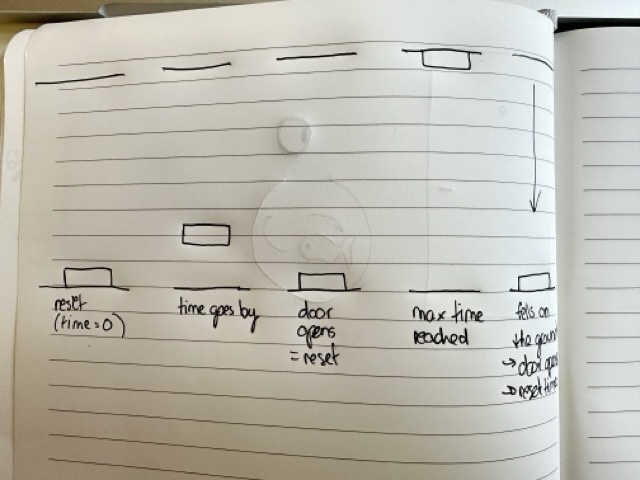 reset
(time=0)
time goes by
door
opens
= reset
max time
reached
falls on
the ground
→ door opens
→ reset time